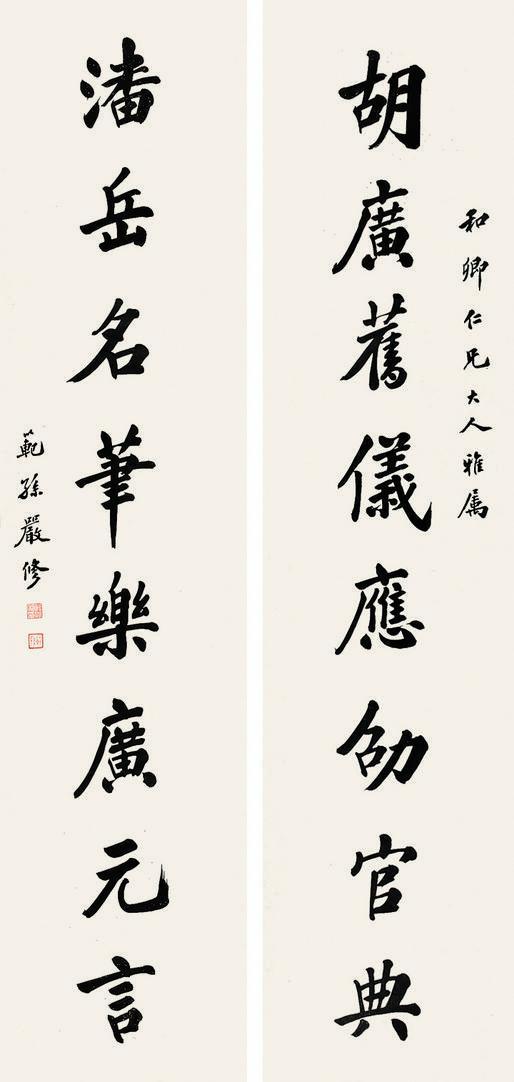 和卿仁兄大人雅属
胡廣舊儀應劭官典
潘岳名筆樂廣元言
範孫嚴修